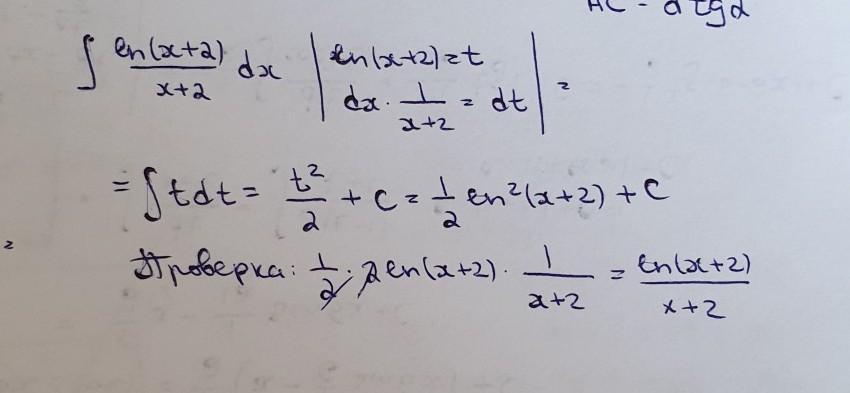 AC = a tg α
∫ ln(x+2)/(x+2) dx | ln(x+2)=t
dx · 1/(x+2) = dt | =
= ∫ t dt = t²/2 + C = 1/2 ln²(x+2) + C
=
Проверка: 1/2 · 2 ln(x+2) · 1/(x+2) = ln(x+2)/(x+2)